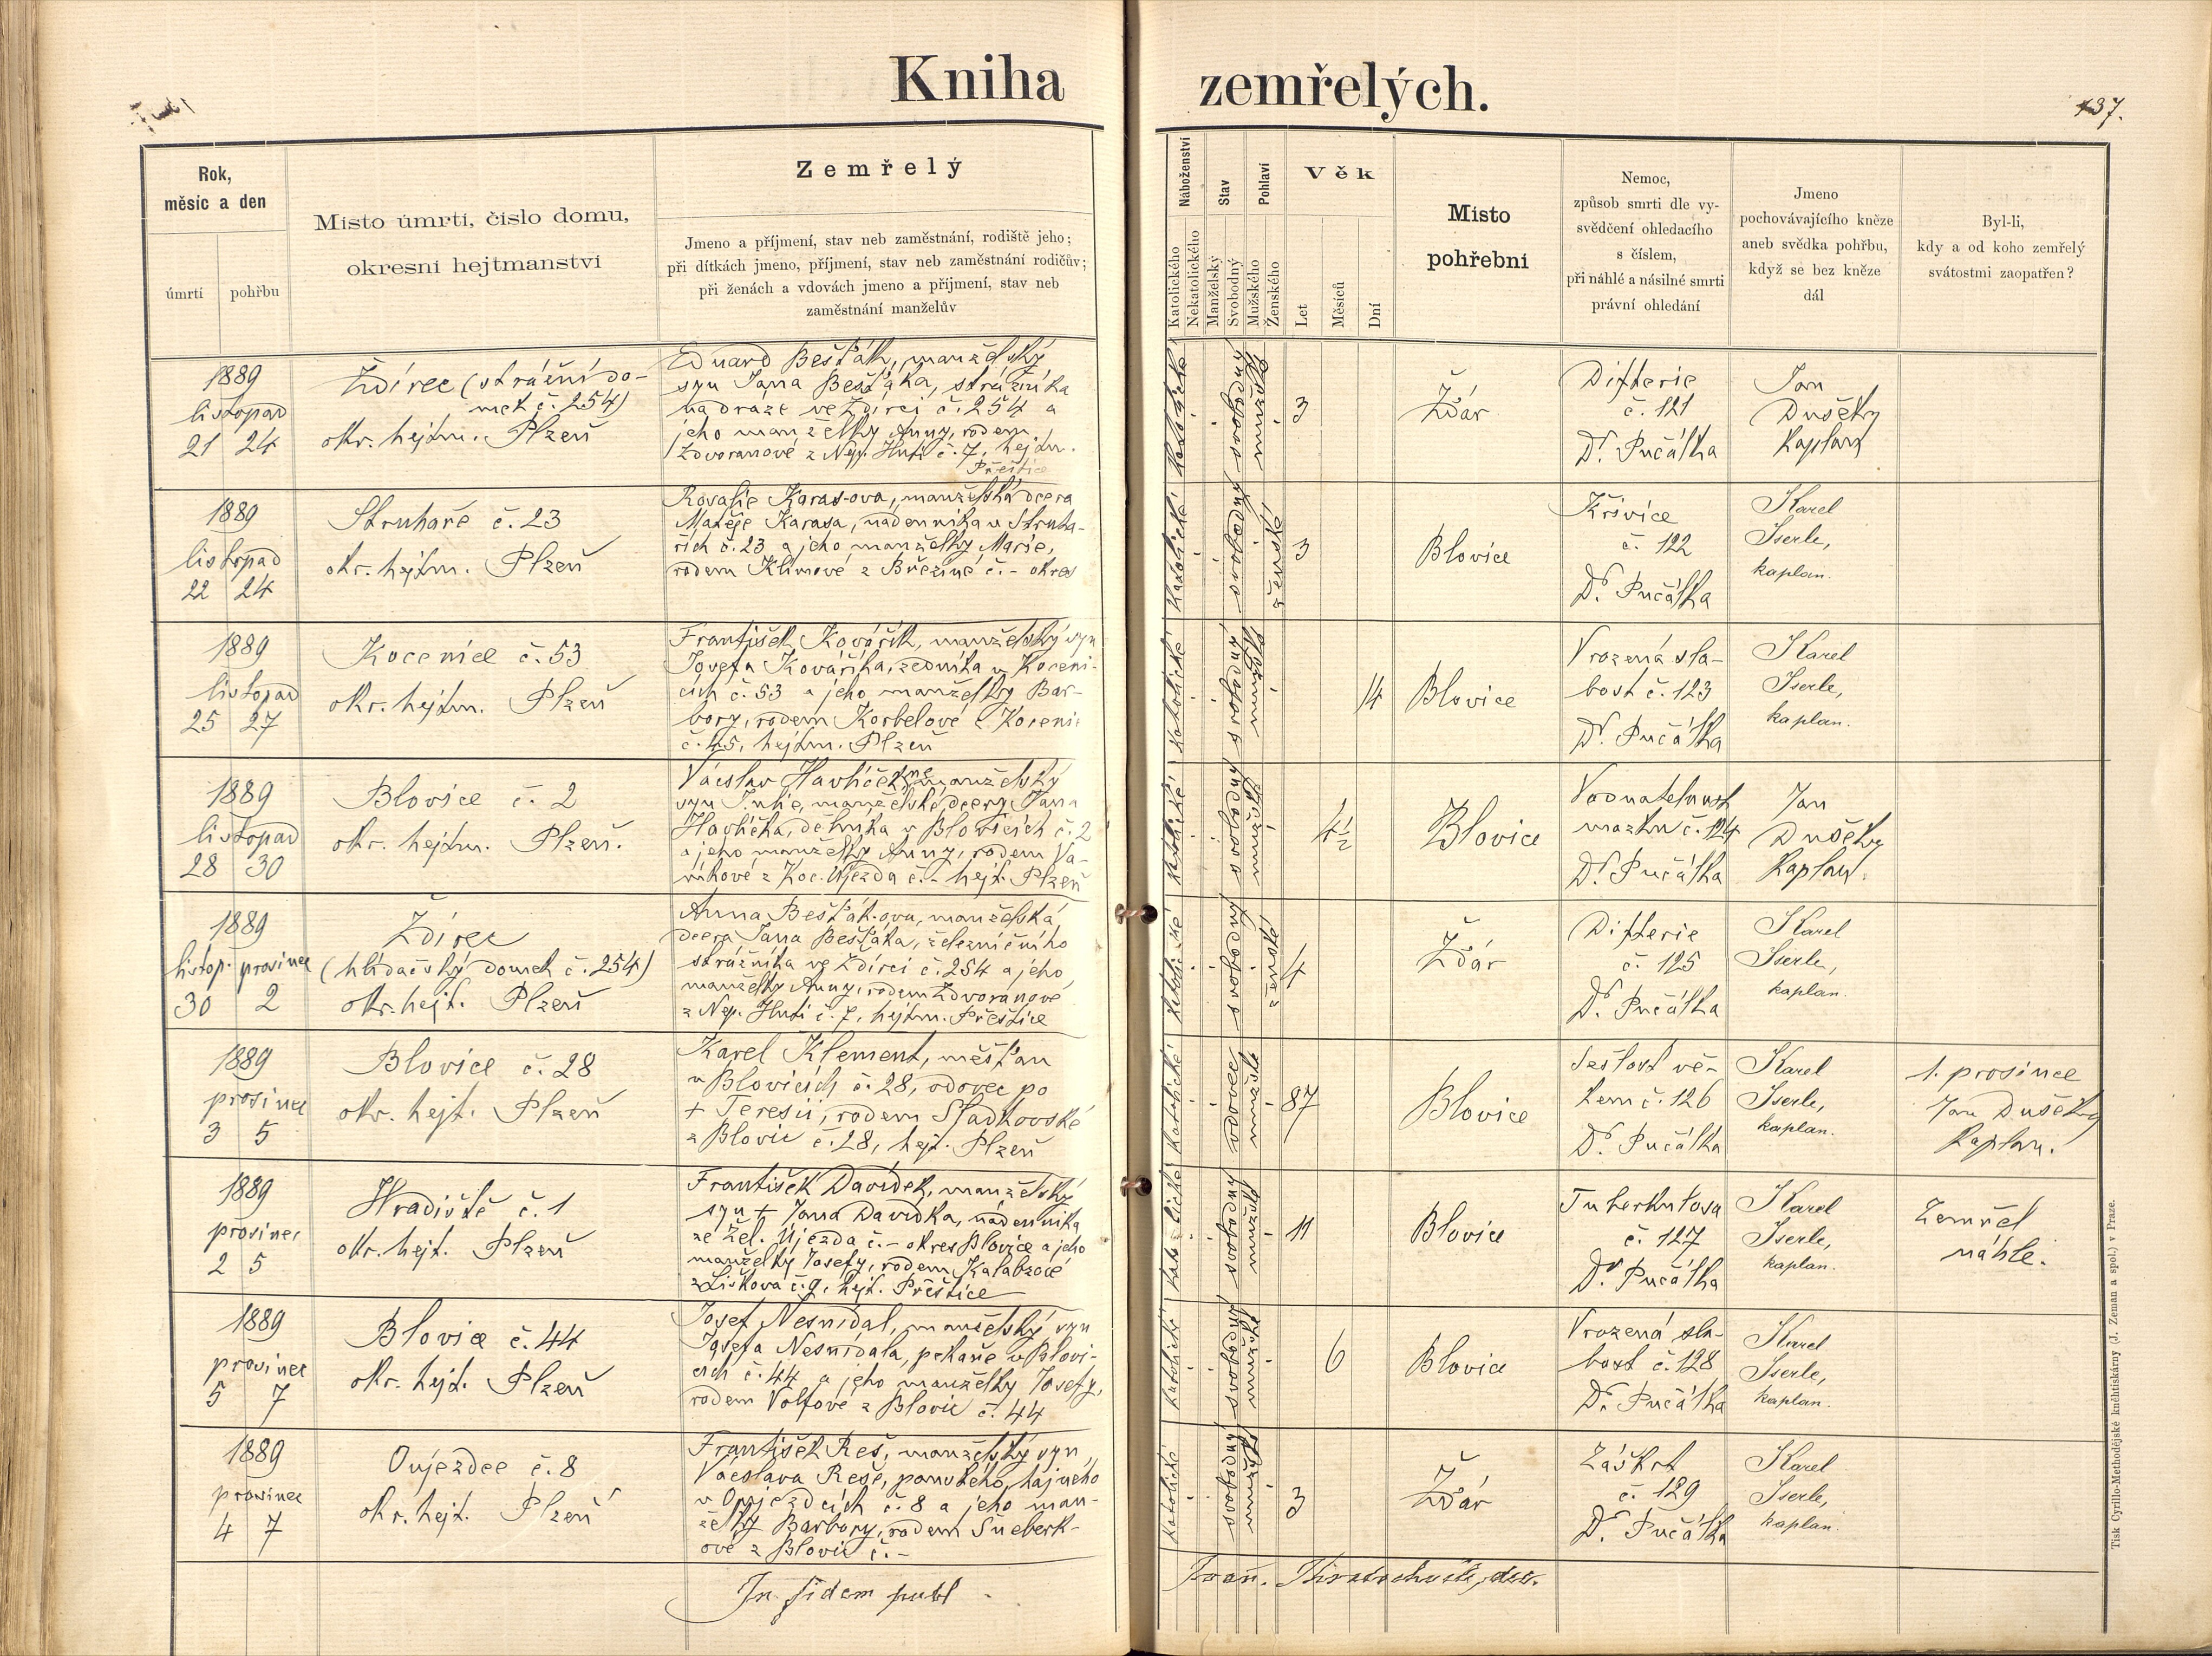 Kniha zemřelých.
137.
Rok,
měsíc a den
úmrtí
pohřbu
Místo úmrtí, číslo domu,
okresní hejtmanství
Zemřelý
Jmeno a příjmení, stav neb zaměstnání, rodiště jeho;
při dítkách jmeno, příjmení, stav neb zaměstnání rodičův;
při ženách a vdovách jmeno a příjmení, stav neb
zaměstnání manželův
Náboženství
Katolického
Nekatolického
Stav
Manželský
Svobodný
Pohlaví
Mužského
Ženského
Věk
Let
Měsíců
Dní
Místo
pohřební
Nemoc,
způsob smrti dle vy-
svědčení ohledacího
s číslem,
při náhlé a násilné smrti
právní ohledání
Jmeno
pochovávajícího kněze
aneb svědka pohřbu,
když se bez kněze
dál
Byl-li,
kdy a od koho zemřelý
svátostmi zaopatřen?
1889
listopad
21 24
Ždírec (strážní do-
mek č. 254)
okr. hejtm. Plzeň
Eduard Bešťák, manželský
syn Jana Bešťáka, strážníka
na dráze ve Ždírci č. 254 a
jeho manželky Anny, rodem
Zdvoranové z Nep. Huti č. 7, hejtm.
Přeštice
katolické
svobodný
mužské
3
Žďár
Difterie
č. 121
Dr. Pučálka
Jan
Dušek,
kaplan
1889
listopad
22 24
Struhaře č. 23
okr. hejtm. Plzeň
Rosalie Karas-ova, manželská dcera
Matěje Karasa, nádenníka v Struha-
řích č. 23 a jeho manželky Marie,
rodem Klímové z Březiné č. - okres
katolické
svobodný
ženské
3
Blovice
Křivice
č. 122
Dr. Pučálka
Karel
Iserle,
kaplan.
1889
listopad
25 27
Kocenice č. 53
okr. hejtm. Plzeň
František Kovářík, manželský syn
Josefa Kováříka, zedníka v Koceni-
cích č. 53 a jeho manželky Bar-
bory, rodem Korbelové z Kocenic
č. 45, hejtm. Plzeň
katolické
svobodný
mužské
14
Blovice
Vrozená sla-
bost č. 123
Dr. Pučálka
Karel
Iserle,
kaplan.
1889
listopad
28 30
Blovice č. 2
okr. hejtm. Plzeň.
Václav Havlíček, nemanželský
syn Julie, manželské dcery Jana
Havlíčka, dělníka v Blovicích č. 2
a jeho manželky Anny, rodem Va-
níkové z Koc. Újezda č. - hejt. Plzeň
katolické
svobodný
mužské
4½
Blovice
Vodnatelnost
mozku č. 124
Dr. Pučálka
Jan
Dušek,
kaplan.
1889
listop. prosinec
30 2
Ždírec
(hlídačský domek č. 254)
okr. hejt. Plzeň
Anna Bešťák-ova, manželská
dcera Jana Bešťáka, železničního
strážníka ve Ždírci č. 254 a jeho
manželky Anny, rodem Zdvoranové
z Nep. Huti č. 7, hejtm. Přeštice
katolické
svobodný
ženské
4
Žďár
Difterie
č. 125
Dr. Pučálka
Karel
Iserle,
kaplan.
1889
prosinec
3 5
Blovice č. 28
okr. hejt. Plzeň
Karel Klement, měšťan
v Blovicích č. 28, vdovec po
+ Teresii, rodem Sladkovské
z Blovic č. 28, hejt. Plzeň
katolické
vdovec
mužské
87
Blovice
Sešlost vě-
kem č. 126
Dr. Pučálka
Karel
Iserle,
kaplan.
1. prosince
Jan Dušek,
kaplan.
1889
prosinec
2 5
Hradiště č. 1
okr. hejt. Plzeň
František Davídek, manželský
syn + Jana Davídka, nádenníka
ze Žel. Újezda č. - okres Blovice a jeho
manželky Josefy, rodem Kalabzové
z Liškova č. 9, hejt. Přeštice
katolické
svobodný
mužské
11
Blovice
Tuberkulosa
č. 127
Dr. Pučálka
Karel
Iserle,
kaplan.
Zemřel
náhle.
1889
prosinec
5 7
Blovice č. 44
okr. hejt. Plzeň
Josef Nesnídal, manželský syn
Josefa Nesnídala, pekaře v Blovi-
cích č. 44 a jeho manželky Josefy,
rodem Volfové z Blovic č. 44
katolické
svobodný
mužské
6
Blovice
Vrozená sla-
bost č. 128
Dr. Pučálka
Karel
Iserle,
kaplan.
1889
prosinec
4 7
Oujezdec č. 8
okr. hejt. Plzeň
František Reš, manželský syn
Václava Reše, panského hajného
v Oujezdcích č. 8 a jeho man-
želky Barbory, rodem Šneberk-
ové z Blovic č. -
katolické
svobodný
mužské
3
Žďár
Záškrt
č. 129
Dr. Pučálka
Karel
Iserle,
kaplan.
In fidem publ
Fran.
Tisk Cyrillo-Methodějské knihtiskárny (J. Zeman a spol.) v Praze.